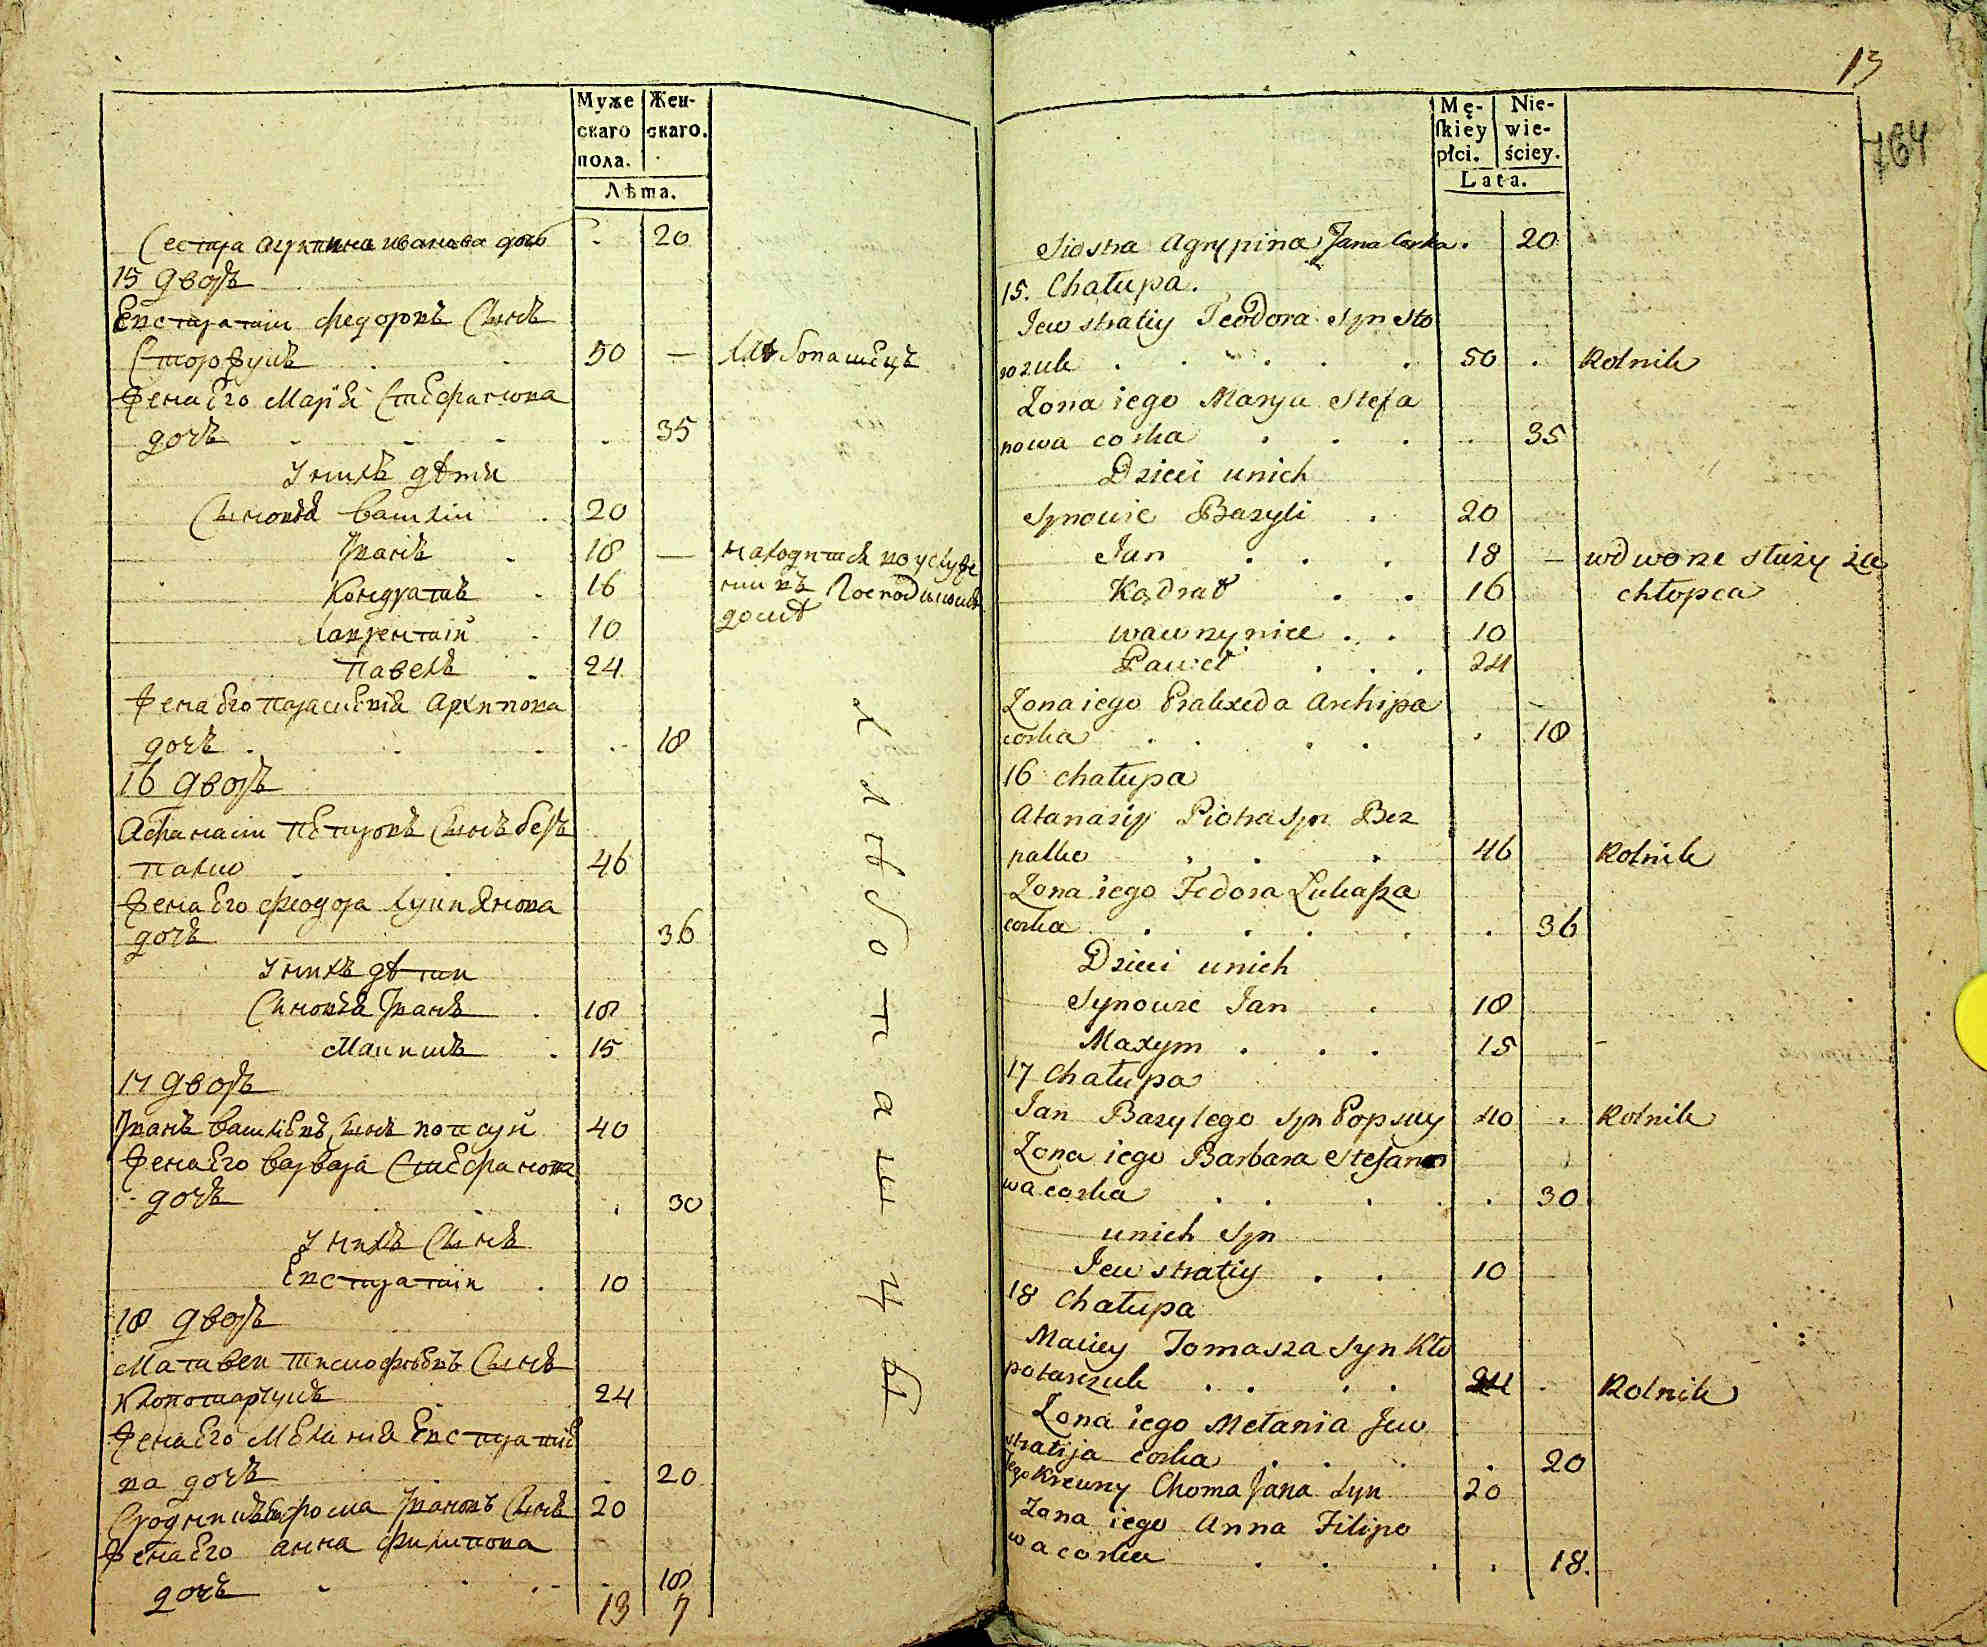 Муже
скаго
пола.
Жен-
скаго.
Лѣта.
Сестра агрипина иванова дочь . 20
15 дворъ
Евстратiи федоровъ Сынъ
Сторожукъ 50 — хлѣбопашецъ
жена Его Марiя Стефанова
дочь 35
У нихъ дѣти
Сыновья василiи 20
Иванъ 18 — находится въ услуже
Кондратъ 16
нии въ Господиномъ
Лаврентiй 10
домѣ
Павелъ 24
жена Его Парасковiя Архипова
дочь 18
16 дворъ
Афанасiи Петровъ Сынъ безъ
палко 46
жена Его Феодора
дочь 36
У нихъ дѣти
Сыновья Иванъ 18
Максимъ 15
17 дворъ
Иванъ васильевъ Сынъ попсуй 40
жена Его варвара Стефанова
дочь 30
У нихъ Сынъ
Евстратiи 10
18 дворъ
Матвеи тимофѣевъ Сынъ
Клопотарчукъ 24
жена Его Меланiя Евстратiе
ва дочь 20
фома Ивановъ Сынъ 20
жена Его анна филипова
дочь 18
13 7
хлѣбопашцы
13
764
Mę-
skiey
płci.
Nie-
wie-
ściey.
Lata.
Siostra Agrypina Jana Corka. 20
15. Chałupa.
Jewstratiy Teodora Syn Sto
rozuk 50 Rolnik
Zona iego Marya Stefa
nowa corka 35
Dzieci unich
Synowie Bazyli 20
Jan 18 — wdworze służy za
Kądrat 16 chłopca
wawrzyniec 10
Paweł 24
Zona iego Praxeda Archipa
corka 18
16 chałupa
Atanaziy Piotra Syn Bez
palko 46 Rolnik
Zona iego Fedora Łukasza
corka 36
Dzieci unich
Synowie Jan 18
Maxym 15
17 Chałupa
Jan Bazylego Syn Popsuy 40 Rolnik
Zona iego Barbara Stefano
wa corka 30
unich Syn
Jewstratiy 10
18 Chałupa
Maciey Tomasza Syn Kło
potarczuk 24 Rolnik
Zona iego Mełania Jew
stratija corka 20
Jego Krewny Choma Jana Syn 20
Zona iego Anna Filipo
wa corka 18.